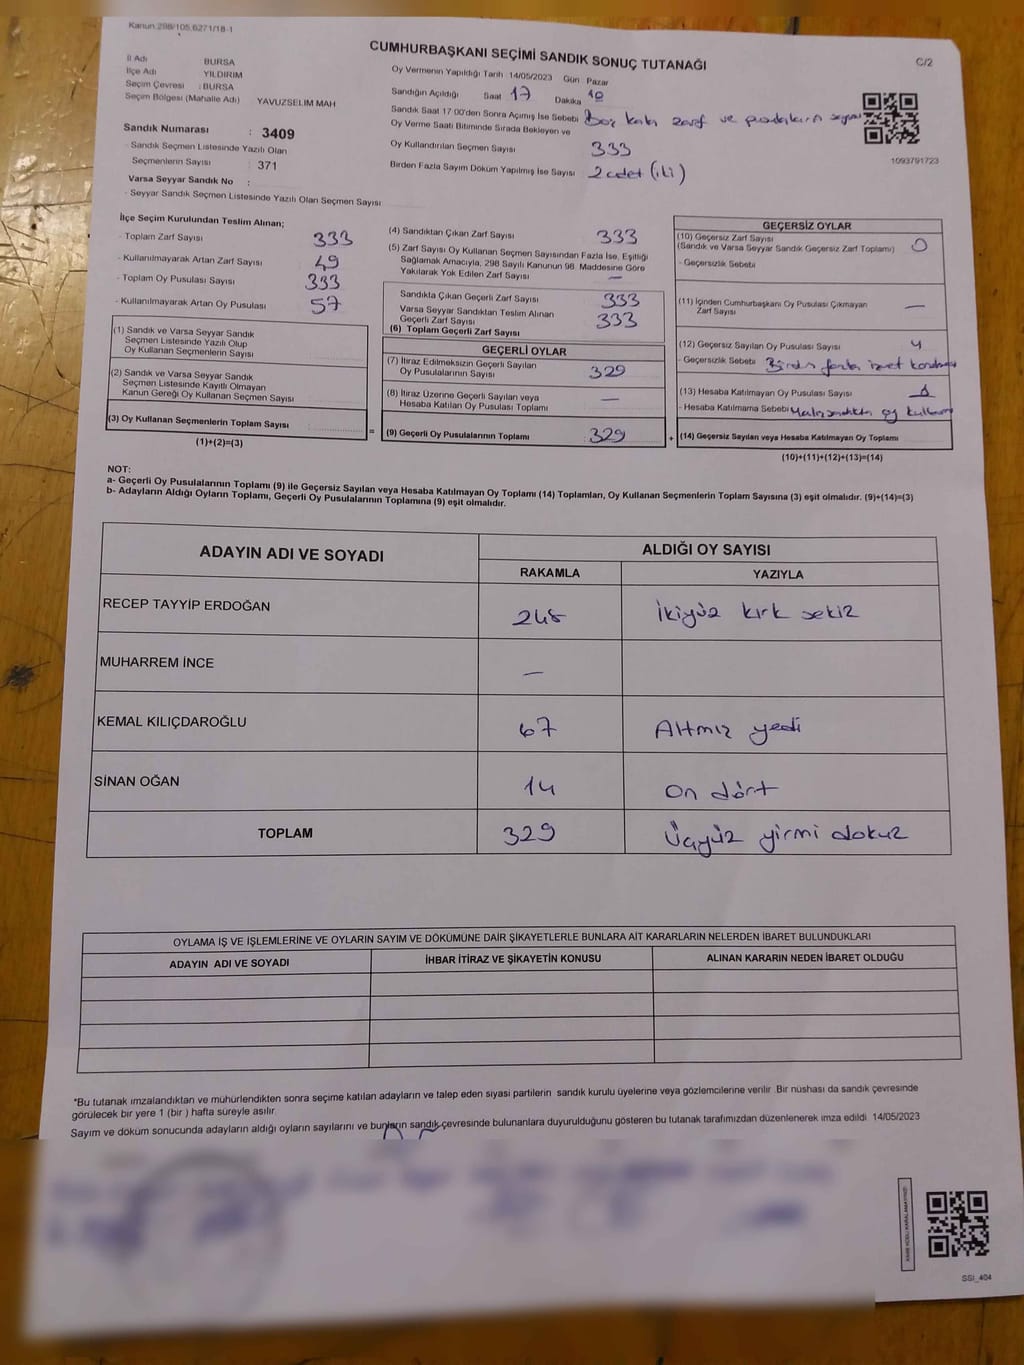 Kanun:298/105,6271/18-1
CUMHURBAŞKANI SEÇİMİ SANDIK SONUÇ TUTANAĞI
C/2
İl Adı BURSA
İlçe Adı YILDIRIM
Seçim Çevresi : BURSA
Seçim Bölgesi (Mahalle Adı) YAVUZSELIM MAH
Sandık Numarası : 3409
- Sandık Seçmen Listesinde Yazılı Olan
Seçmenlerin Sayısı : 371
Varsa Seyyar Sandık No :
- Seyyar Sandık Seçmen Listesinde Yazılı Olan Seçmen Sayısı
Oy Vermenin Yapıldığı Tarih 14/05/2023 Gün Pazar
Sandığın Açıldığı Saat 17 Dakika 10
Sandık Saat 17:00'den Sonra Açımış İse Sebebi Boş kalan zarf ve pusulaların sayımı
Oy Verme Saati Bitiminde Sırada Bekleyen ve
Oy Kullandırılan Seçmen Sayısı 333
Birden Fazla Sayım Döküm Yapılmış İse Sayısı 2 adet (iki)
1093791723
İlçe Seçim Kurulundan Teslim Alınan;
- Toplam Zarf Sayısı 333
- Kullanılmayarak Artan Zarf Sayısı 49
- Toplam Oy Pusulası Sayısı 333
- Kullanılmayarak Artan Oy Pusulası 57
(1) Sandık ve Varsa Seyyar Sandık
Seçmen Listesinde Yazılı Olup
Oy Kullanan Seçmenlerin Sayısı
(2) Sandık ve Varsa Seyyar Sandık
Seçmen Listesinde Kayıtlı Olmayan
Kanun Gereği Oy Kullanan Seçmen Sayısı
(3) Oy Kullanan Seçmenlerin Toplam Sayısı =
(1)+(2)=(3)
(4) Sandıktan Çıkan Zarf Sayısı 333
(5) Zarf Sayısı Oy Kullanan Seçmen Sayısından Fazla İse, Eşitliği
Sağlamak Amacıyla, 298 Sayılı Kanunun 98. Maddesine Göre
Yakılarak Yok Edilen Zarf Sayısı —
Sandıkta Çıkan Geçerli Zarf Sayısı 333
Varsa Seyyar Sandıktan Teslim Alınan
Geçerli Zarf Sayısı 333
(6) Toplam Geçerli Zarf Sayısı
GEÇERLİ OYLAR
(7) İtiraz Edilmeksizin Geçerli Sayılan
Oy Pusulalarının Sayısı 329
(8) İtiraz Üzerine Geçerli Sayılan veya
Hesaba Katılan Oy Pusulası Toplamı —
(9) Geçerli Oy Pusulalarının Toplamı : 329 +
GEÇERSİZ OYLAR
(10) Geçersiz Zarf Sayısı
(Sandık ve Varsa Seyyar Sandık Geçersiz Zarf Toplamı) 0
- Geçersizlik Sebebi
(11) İçinden Cumhurbaşkanı Oy Pusulası Çıkmayan
Zarf Sayısı —
(12) Geçersiz Sayılan Oy Pusulası Sayısı 4
- Geçersizlik Sebebi Birden fazla
(13) Hesaba Katılmayan Oy Pusulası Sayısı
- Hesaba Katılmama Sebebi
(14) Geçersiz Sayılan veya Hesaba Katılmayan Oy Toplamı
(10)+(11)+(12)+(13)=(14)
NOT:
a- Geçerli Oy Pusulalarının Toplamı (9) ile Geçersiz Sayılan veya Hesaba Katılmayan Oy Toplamı (14) Toplamları, Oy Kullanan Seçmenlerin Toplam Sayısına (3) eşit olmalıdır. (9)+(14)=(3)
b- Adayların Aldığı Oyların Toplamı, Geçerli Oy Pusulalarının Toplamına (9) eşit olmalıdır.
ADAYIN ADI VE SOYADI
ALDIĞI OY SAYISI
RAKAMLA YAZIYLA
RECEP TAYYİP ERDOĞAN 248 İkiyüz kırk sekiz
MUHARREM İNCE —
KEMAL KILIÇDAROĞLU 67 Altmış yedi
SİNAN OĞAN 14 On dört
TOPLAM 329 Üçyüz yirmi dokuz
OYLAMA İŞ VE İŞLEMLERİNE VE OYLARIN SAYIM VE DÖKÜMÜNE DAİR ŞİKAYETLERLE BUNLARA AİT KARARLARIN NELERDEN İBARET BULUNDUKLARI
ADAYIN ADI VE SOYADI İHBAR İTİRAZ VE ŞİKAYETİN KONUSU ALINAN KARARIN NEDEN İBARET OLDUĞU
*Bu tutanak imzalandıktan ve mühürlendikten sonra seçime katılan adayların ve talep eden siyasi partilerin sandık kurulu üyelerine veya gözlemcilerine verilir. Bir nüshası da sandık çevresinde
görülecek bir yere 1 (bir ) hafta süreyle asılır.
Sayım ve döküm sonucunda adayların aldığı oyların sayılarını ve bunların sandık çevresinde bulunanlara duyurulduğunu gösteren bu tutanak tarafımızdan düzenlenerek imza edildi. 14/05/2023
SSI_404